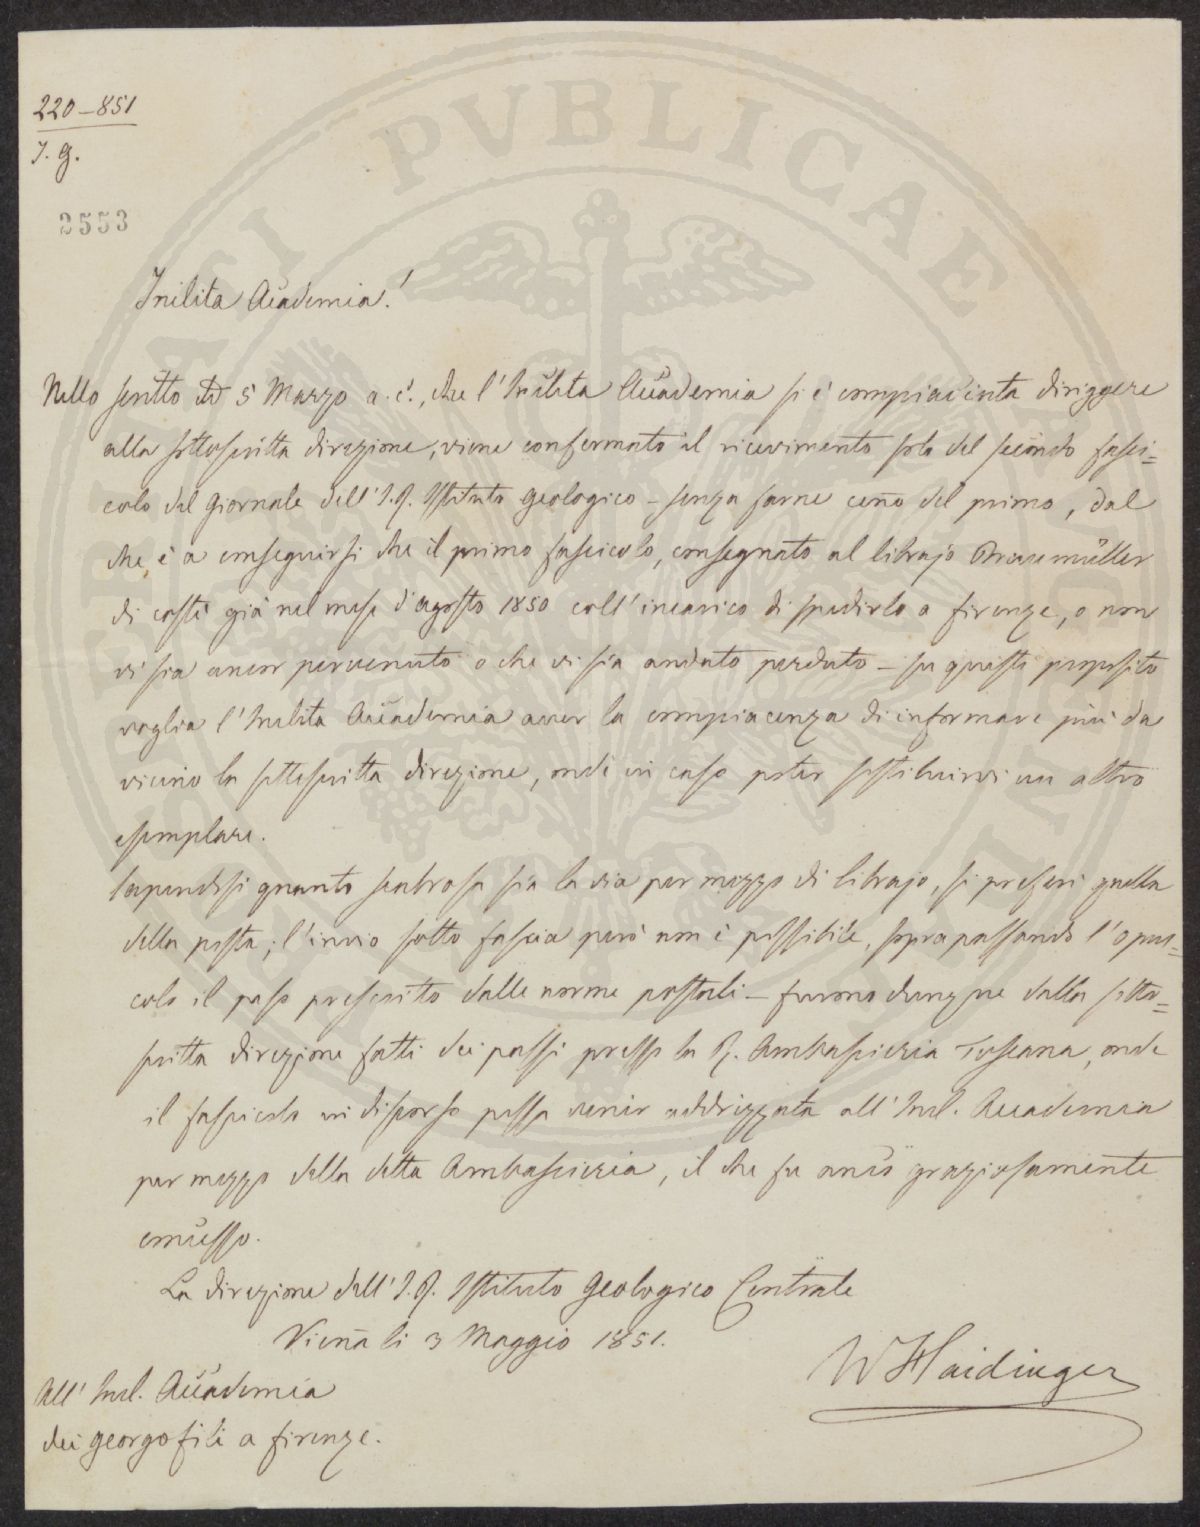 220–851
J. G.
2553
Inclita Accademia!
Nello scritto dd 5 Marzo a. c., che l'Inclita Accademia si è compiaciuta diriggere
alla sottoscritta direzione, viene confermato il ricevimento solo del secondo fasci=
colo del Giornale dell'I. R. Istituto Geologico – senza farne ceño del primo, dal
che, è a conseguirsi che il primo fascicolo, consegnato al librajo Braumüller
di costì già nel mese d'agosto 1850 coll'incarico di spedirlo a firenze, o non
vi sia ancor pervenuto o che vi sia andato perduto – su questo proposito
voglia l'Inclita Accademia aver la compiacenza di informare più da
vicino la sottoscritta direzione, onde in caso poter sostituirvi un altro
esemplare.
Sapendosi quanto scabrosa sia la via per mezzo di librajo, si preferì quella
della posta; l'invio sotto fascia però non è possibile, soprapassando l'opus=
colo il peso prescritto dalle norme postali – furono dunque dalla sotto=
scritta direzione fatti dei passi presso la R. Ambascieria Toscana, onde
il fascicolo in discorso possa venir addrizzato all'Incl. Accademia
per mezzo della detta Ambascieria, il che fu anco graziosamente
concesso.
La direzione dell'I. R. Istituto Geologico Centrale
Vieña li 3 Maggio 1851.
W Haidinger
All' Incl. Accademia
dei georgofili a firenze.
PVBLICAE